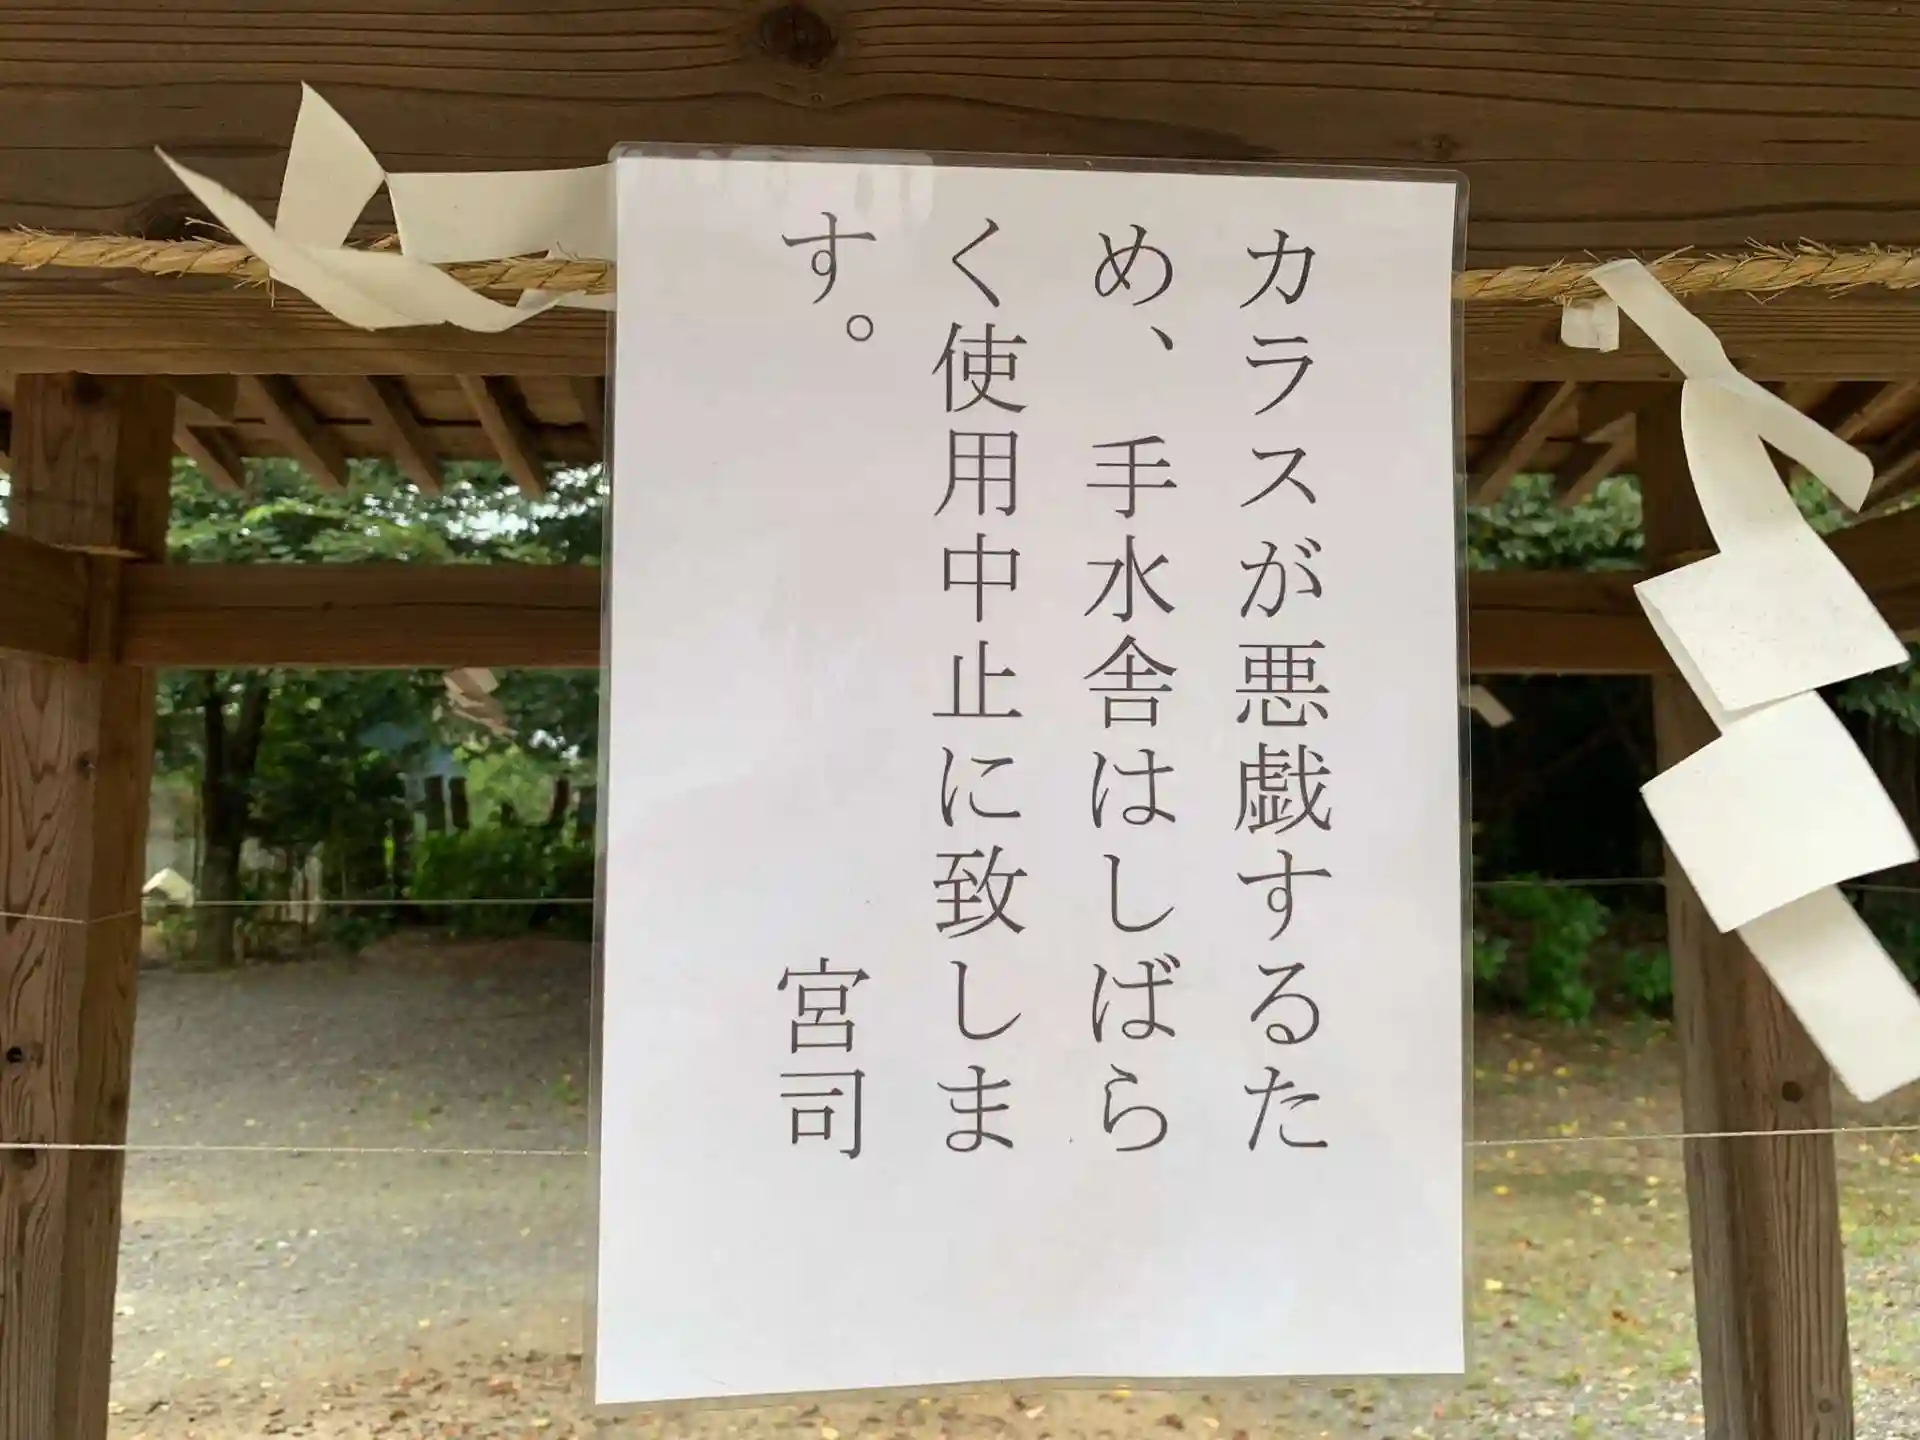 カラスが悪戯するた
め、手水舎はしばら
く使用中止に致しま
す。　　　　　宮司